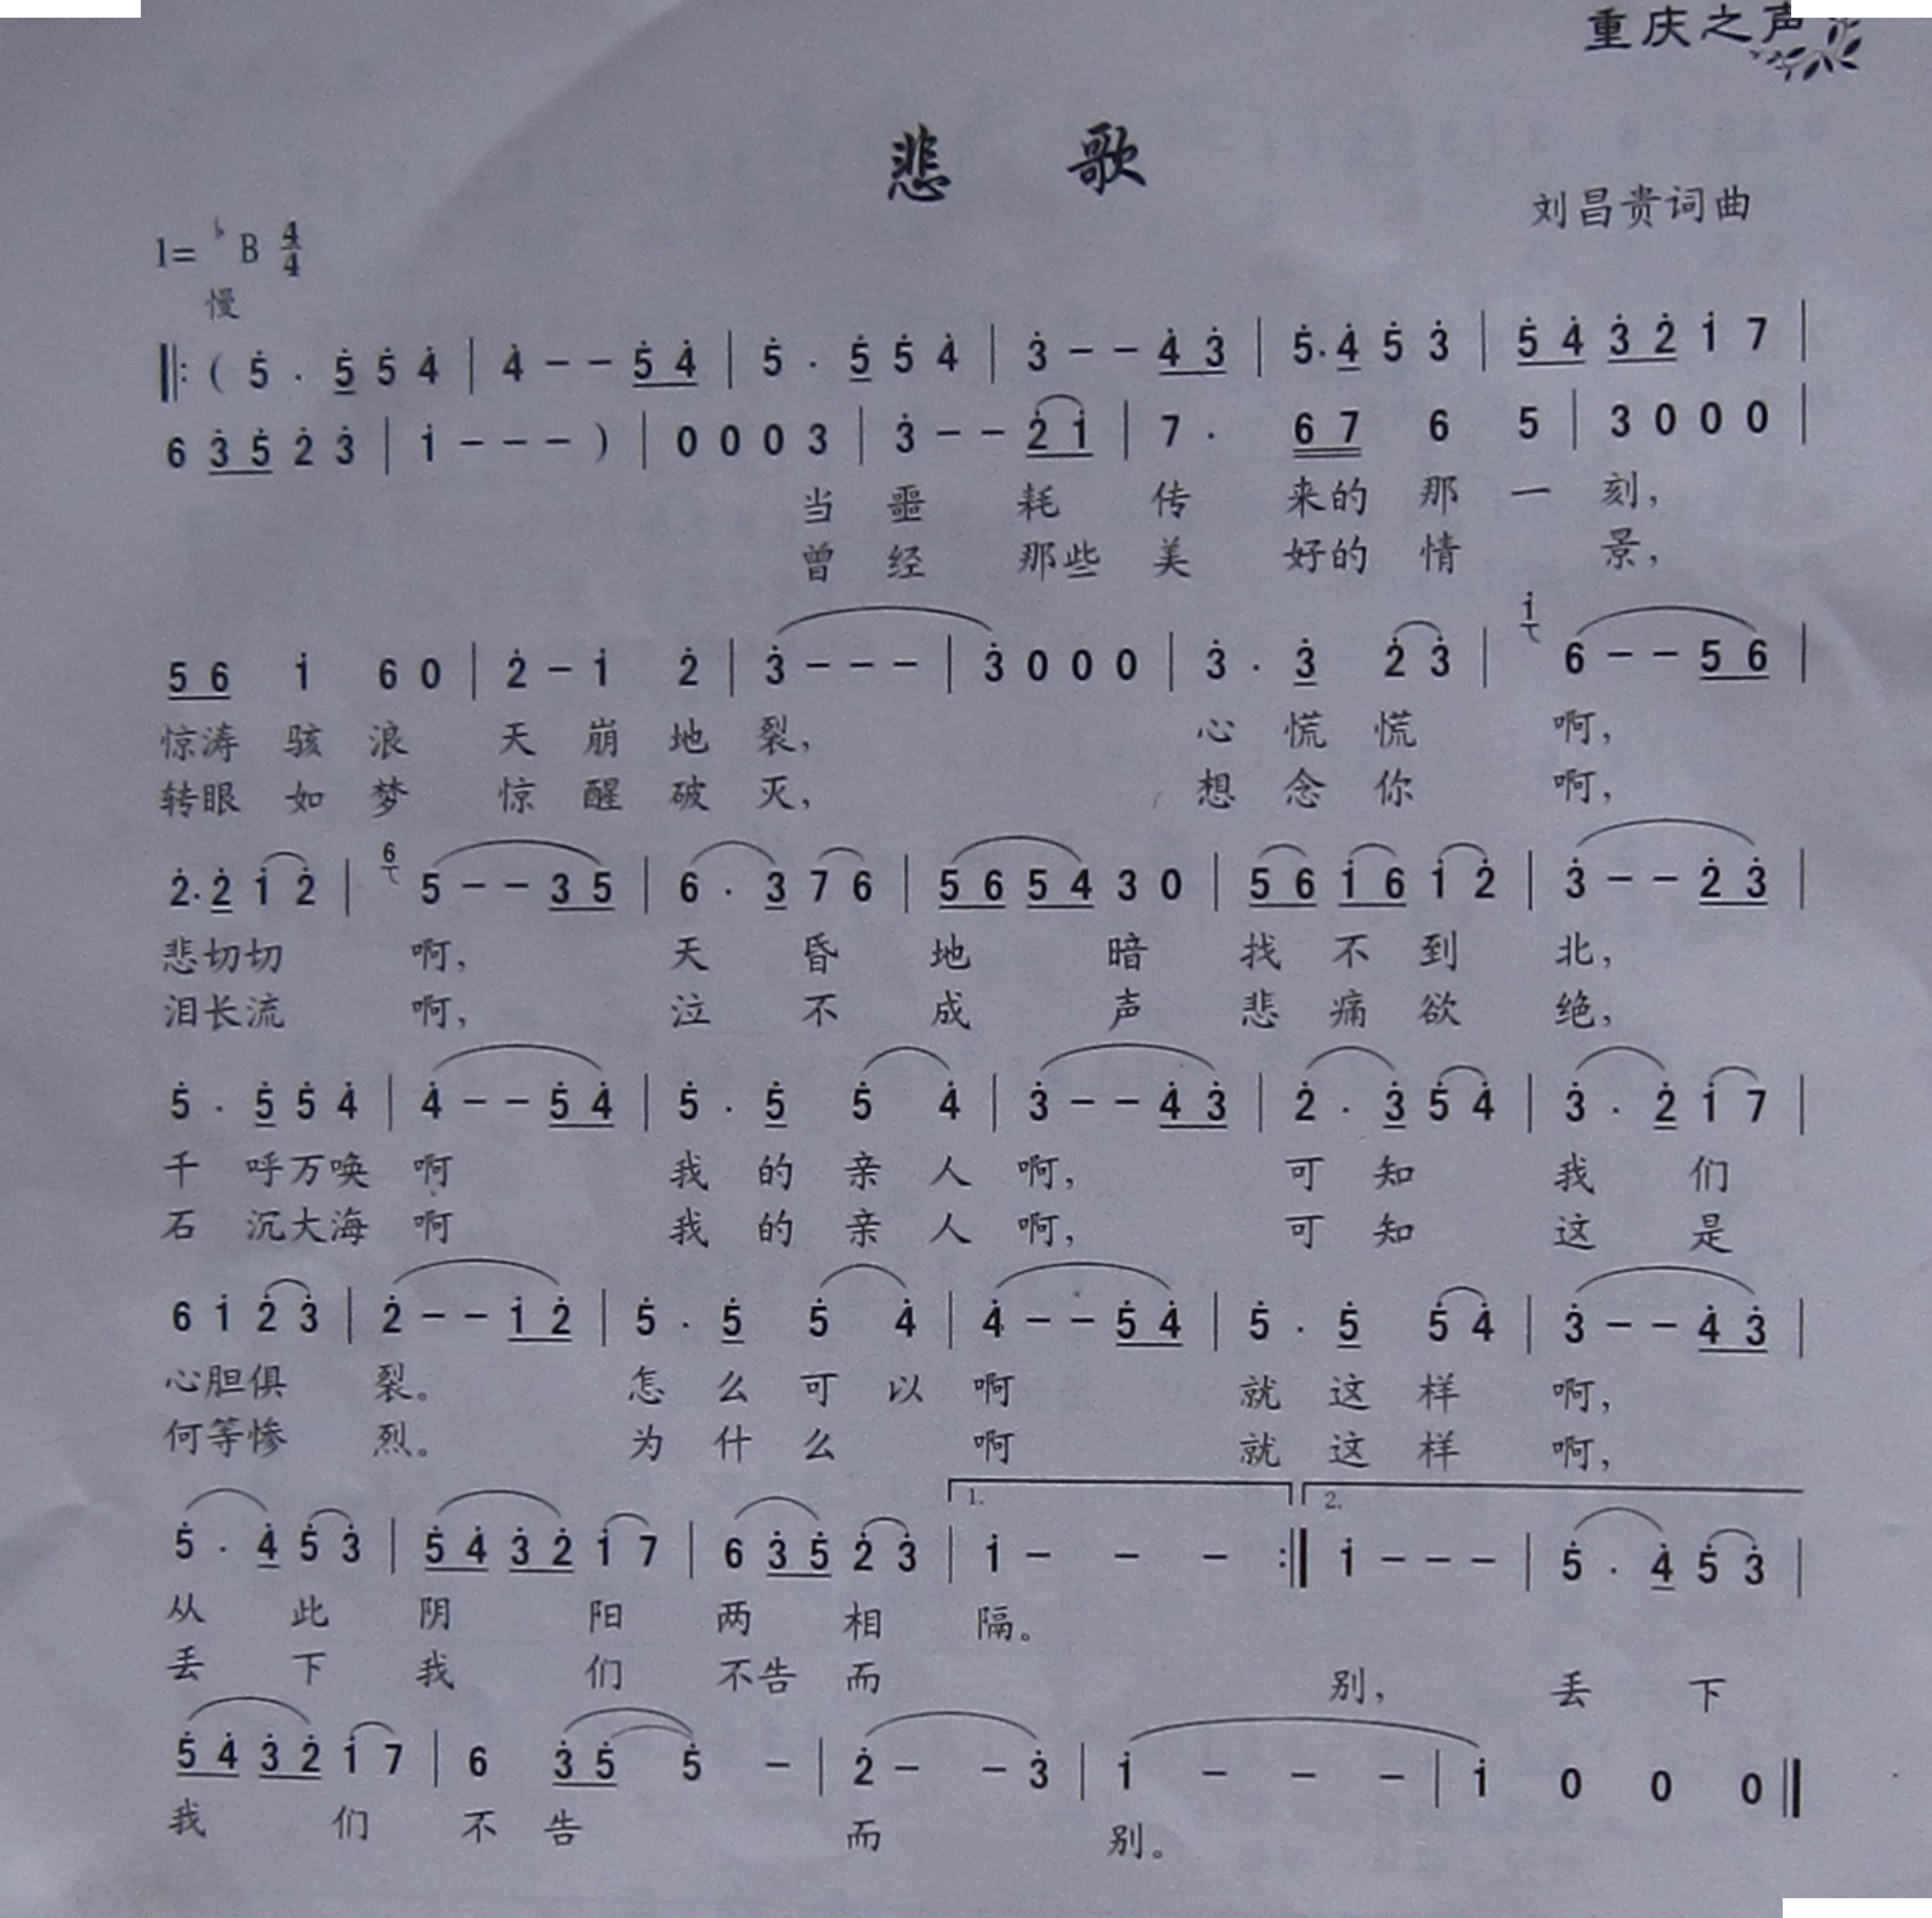 重庆之声
悲 歌
刘昌贵词曲
1= ♭B 4/4
慢
‖: ( 5̇ . 5̇ 5̇ 4̇ | 4̇ - - 5̇ 4̇ | 5̇ . 5̇ 5̇ 4̇ | 3̇ - - 4̇ 3̇ | 5̇. 4̇ 5̇ 3̇ | 5̇ 4̇ 3̇ 2̇ 1̇ 7 |
6 3̇ 5̇ 2̇ 3̇ | 1̇ - - - ) | 0 0 0 3 | 3̇ - - 2̇ 1̇ | 7 . 6 7 6 5 | 3 0 0 0 |
当 噩 耗 传 来的 那 一 刻,
曾 经 那些 美 好的 情 景,
5 6 1̇ 6 0 | 2̇ - 1̇ 2̇ | 3̇ - - - | 3̇ 0 0 0 | 3̇ . 3̇ 2̇ 3̇ | 1̇ 6 - - 5 6 |
惊涛 骇 浪 天 崩 地 裂, 心 慌 慌 啊,
转眼 如 梦 惊 醒 破 灭, 想 念 你 啊,
2̇. 2̇ 1̇ 2̇ | 6 5 - - 3 5 | 6 . 3 7 6 | 5 6 5 4 3 0 | 5 6 1̇ 6 1̇ 2̇ | 3̇ - - 2̇ 3̇ |
悲切切 啊, 天 昏 地 暗 找 不 到 北,
泪长流 啊, 泣 不 成 声 悲 痛 欲 绝,
5̇ . 5̇ 5̇ 4̇ | 4̇ - - 5̇ 4̇ | 5̇ . 5̇ 5̇ 4̇ | 3̇ - - 4̇ 3̇ | 2̇ . 3̇ 5̇ 4̇ | 3̇ . 2̇ 1̇ 7 |
千 呼万唤 啊 我 的 亲 人 啊, 可 知 我 们
石 沉大海 啊 我 的 亲 人 啊, 可 知 这 是
6 1̇ 2̇ 3̇ | 2̇ - - 1̇ 2̇ | 5̇ . 5̇ 5̇ 4̇ | 4̇ - - 5̇ 4̇ | 5̇ . 5̇ 5̇ 4̇ | 3̇ - - 4̇ 3̇ |
心胆俱 裂。 怎 么 可 以 啊 就 这 样 啊,
何等惨 烈。 为 什 么 啊 就 这 样 啊,
1. 2.
5̇ . 4̇ 5̇ 3̇ | 5̇ 4̇ 3̇ 2̇ 1̇ 7 | 6 3̇ 5̇ 2̇ 3̇ | 1̇ - - - :‖ 1̇ - - - | 5̇ . 4̇ 5̇ 3̇ |
从 此 阴 阳 两 相 隔。
丢 下 我 们 不告 而 别, 丢 下
5̇ 4̇ 3̇ 2̇ 1̇ 7 | 6 3̇ 5̇ 5̇ - | 2̇ - - 3̇ | 1̇ - - - | 1̇ 0 0 0 ‖
我 们 不 告 而 别。